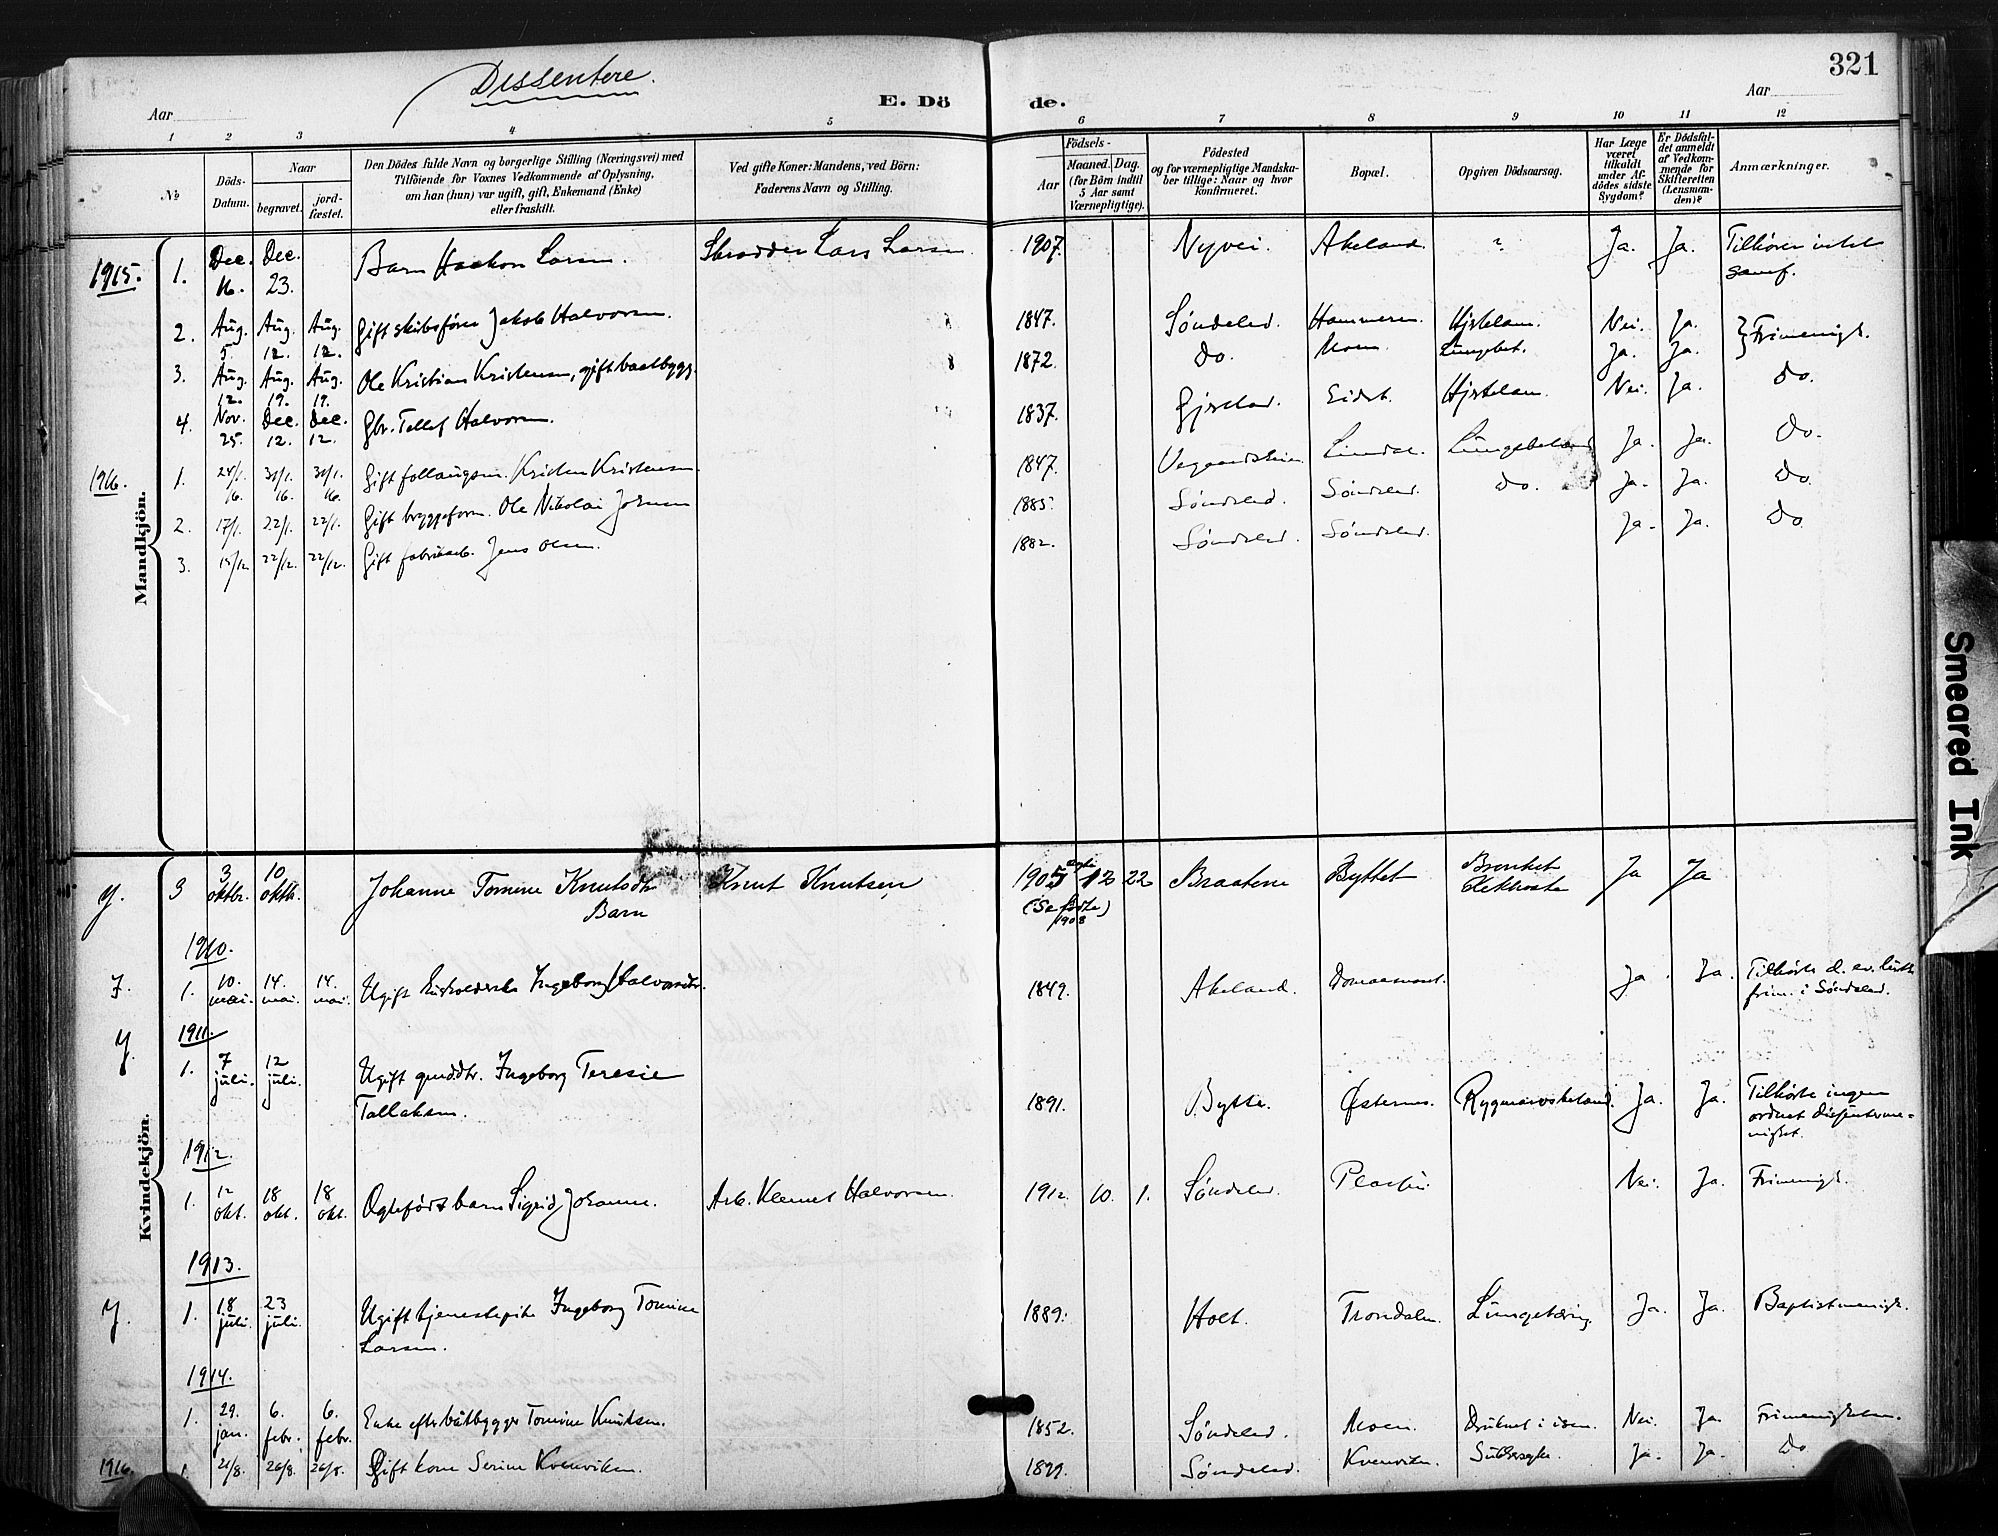 321
Dissentere.
Aar
E. Dö
de.
Aar
1 2 3 4 5 6 7 8 9 10 11 12
№
Döds-
Datum.
Naar
begravet.
jord-
fæstet.
Den Dödes fulde Navn og borgerlige Stilling (Næringsvei) med
Tilföiende for Voxnes Vedkommende af Oplysning,
om han (hun) var ugift, gift, Enkemand (Enke)
eller fraskilt.
Ved gifte Koner: Mandens, ved Börn:
Faderens Navn og Stilling.
Födsels-
Aar
Maaned. Dag.
(for Börn indtil
5 Aar samt
Værnepligtige).
Födested
og for værnepligtige Mandska-
ber tillige: Naar og hvor
konfirmeret.
Bopæl.
Opgiven Dödsaarsag.
Har Læge
været
tilkaldt
under Af-
dödes sidste
Sygdom?
Er Dödsfal-
det anmeldt
af Vedkom-
mende for
Skifteretten
(Lensman-
den)?
Anmærkninger.
Mandkjön.
1915. 1. Dec. 16. Dec. 23. Barn Haakon Larsen. Skrædder Lars Larsen. 1907. Nyvei. Akeland. ? Ja. Ja. Tilhører intet samf.
2. Aug. 5. Aug. 12. Aug. 12. Gift skibsfører Jakob Halvorsen. 1847. Søndeled. Hammeren. Hjertelam. Nei. Ja. } Frimenigh.
3. Aug. 12. Aug. 19. Aug. 19. Ole Kristian Kristensen, gift baatbygg. 1872. Do. Moen. Lungebet. Ja. Ja.
4. Nov. 25. Dec. 12. Dec. 12. Gbr. Tellef Halvorsen. 1837. Gjerstad. Eidet. Hjertelam. Nei. Ja. Do.
1916. 1. 24/1. 16. 31/1. 16. 31/1. 16. Gift Kristen Kristensen 1847. Vegaardsheien. Lindal. Lungebetænd. Ja. Ja. Do.
2. 17/1. 22/1. 22/1. Gift byggeform. Ole Nikolai Jensen 1885. Søndeled. Søndeled. Do. Ja. Ja. Do.
3. 15/12. 22/12. 22/12. Gift fabrikarb. Jens Olsen. 1882. Søndeled. Søndeled. Ja. Ja. Do
Kvindekjön.
3 3 oktbr. 10 oktb. Johanne Tomine Knutsdtr Barn Knut Knutsen 1905 12 22 (Se fødte 1908) Braatene Byttet Ja Ja
1910.
1. 10. mai. 14. mai. 14. mai. Ugift Ingeborg Halvorsdtr. 1849. Akeland. Ja. Ja. Tilhørte d. ev. luth. frim. i Søndeled.
1911.
1. 7 juli. 12 juli. Ugift gmd.dtr. Ingeborg Teresie Tallaksen. 1891. Bytte. Østernes. Rygmarvsbetænd. Ja. Ja. Tilhørte ingen ordnet dissenterme-nighet.
1912.
1. 12 okt. 18 okt. 18 okt. Egtefødt barn Sigrid Johanne. Arb. Klemet Halvorsen. 1912. 10. 1. Søndeled. Nei. Ja. Frimenigh.
1913.
1. 18 juli. 23 juli. Ugift tjenestepike Ingeborg Tomine Larsen. 1889. Holt. Trondalen. Lungetæring. Ja. Ja. Baptistmenigh.
1914.
1. 29. jan. 6. febr. 6. febr. Enke efter båtbygger Tomine Knutsen. 1852. Søndeled. Moen. Druknet i isen. Nei. Ja. Frimenigheten.
1916. 1. 21/8. 26/8. 26/8. Gift kone Serine Kvenviken. 1899. Søndeled. Kvenviken. Sukkersyke. Ja. Ja. Do
Smeared Ink